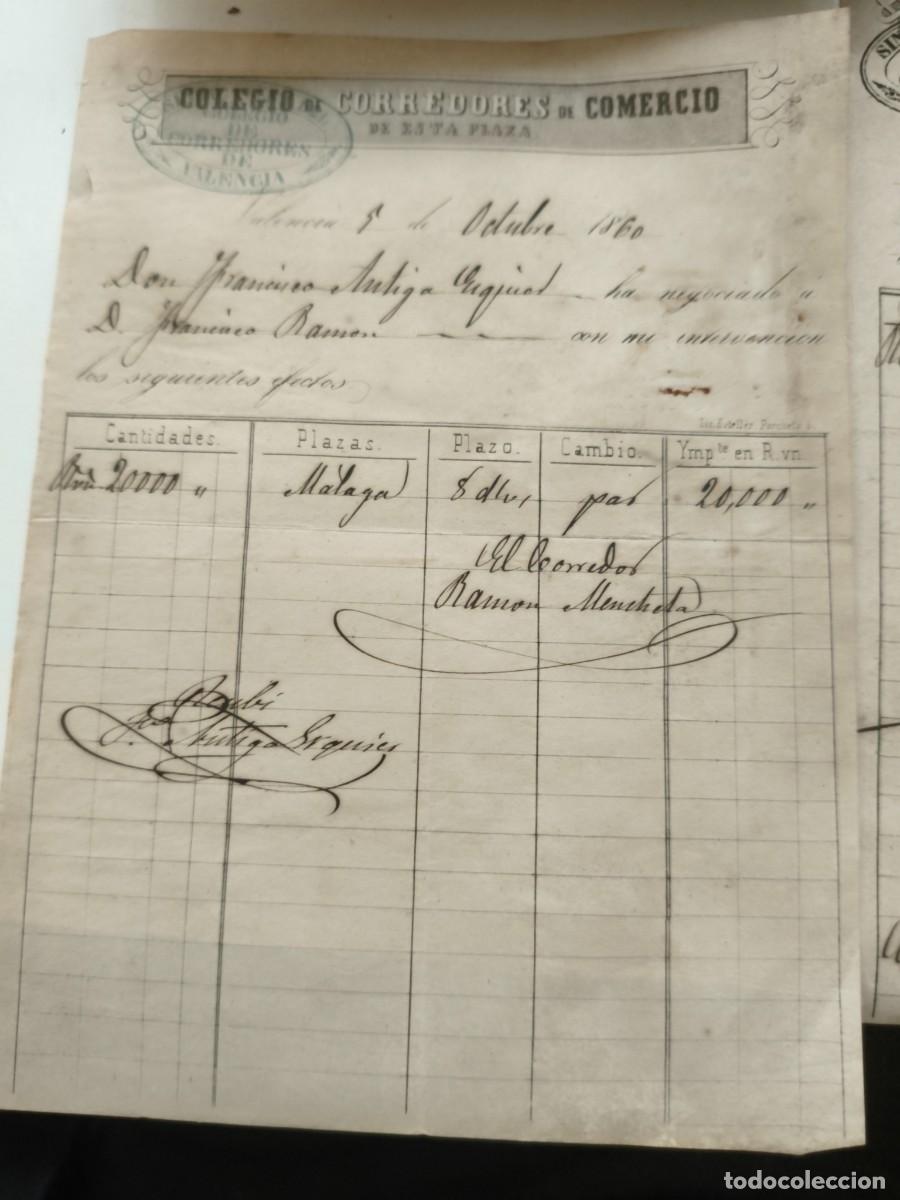 COLEGIO DE CORREDORES DE COMERCIO
DE ESTA PLAZA
COLEGIO
DE
CORREDORES
DE
VALENCIA
Valencia 5 de Octubre 1860
Don Francisco Antiga Esquier ha negociado á
D. Francisco Ramon con mi intervencion
los siguientes efectos
Cantidades. Plazas. Plazo. Cambio. Ymp.te en R.vn.
Rvn 20000 " Málaga 8 d/v, par 20,000 "
El Corredor
Ramon Mencheta
Recibi
Antiga Esquier
SIN
todocoleccion